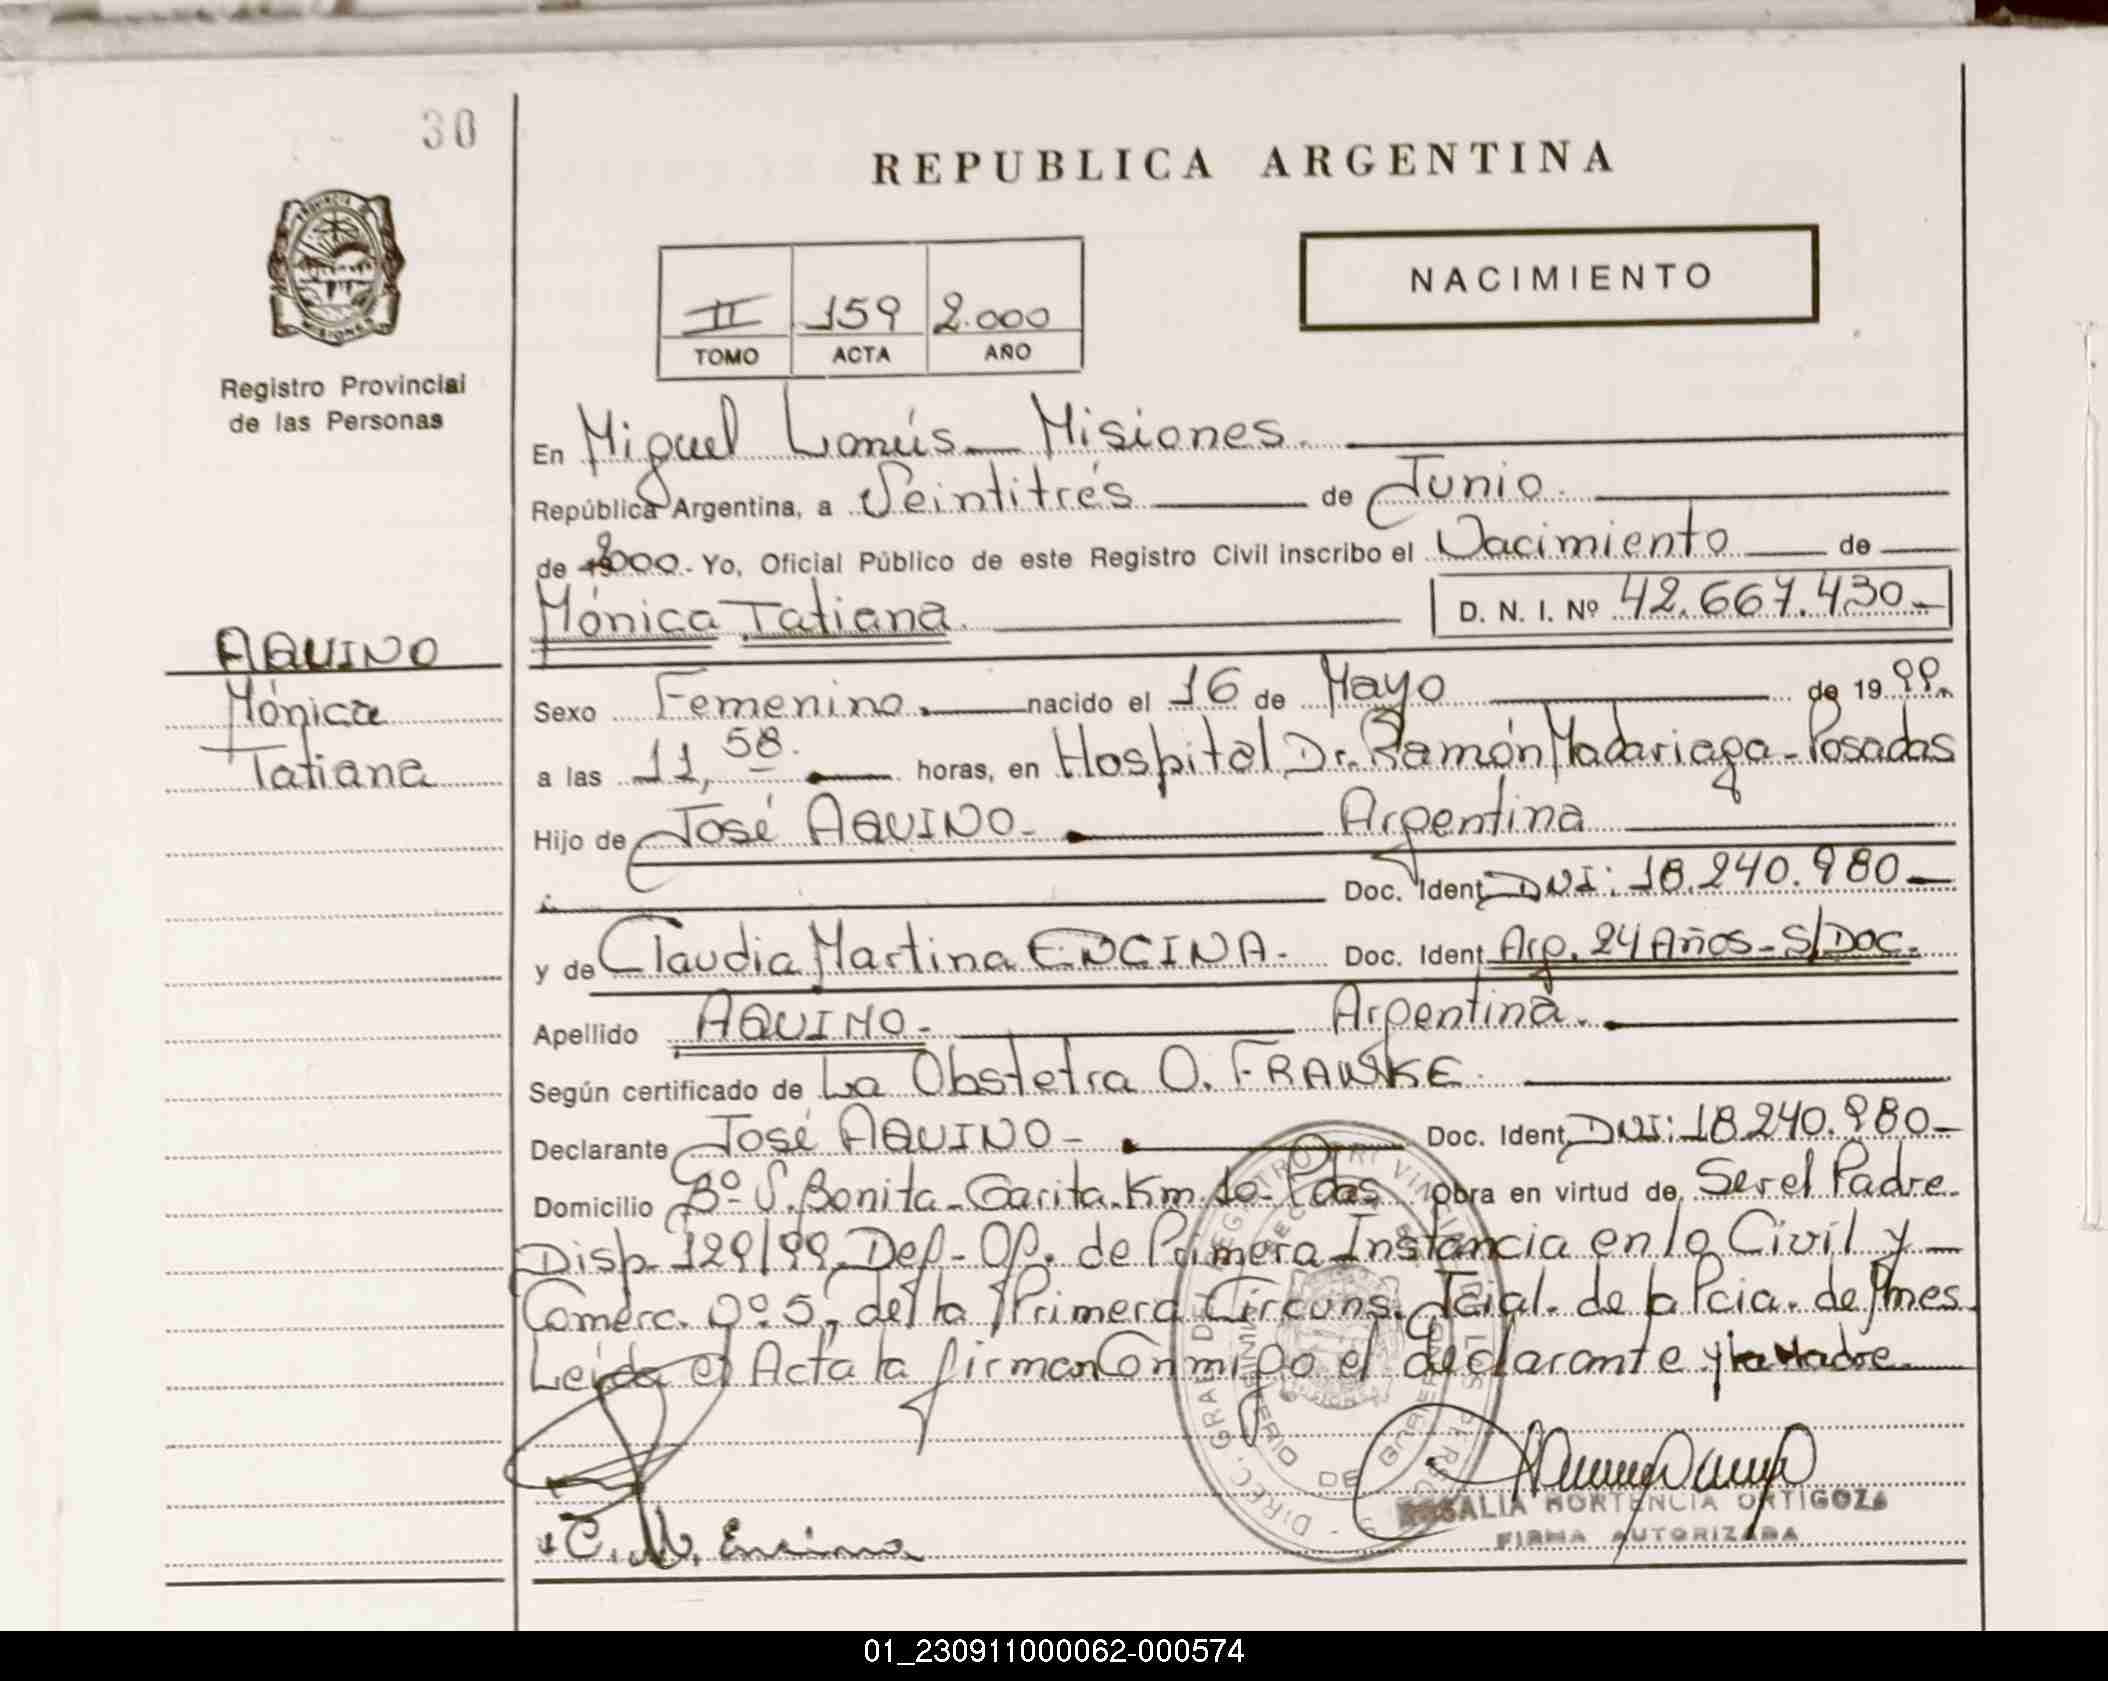 30
REPUBLICA ARGENTINA
PROVINCIA DE
MISIONES
Registro Provincial
de las Personas
II 159 2.000
TOMO ACTA AÑO
NACIMIENTO
En Miguel Lanús - Misiones.
República Argentina, a Veintitrés de Junio.
de 2000. Yo, Oficial Público de este Registro Civil inscribo el Nacimiento de
Mónica Tatiana. D. N. I. Nº 42.667.430.-
AQUINO
Mónica
Tatiana
Sexo Femenino. nacido el 16 de Mayo de 1999.
a las 11,58. horas, en Hospital Dr. Ramón Madariaga - Posadas
Hijo de José AQUINO - Argentina
Doc. Ident DNI: 18.240.980-
y de Claudia Martina ENCINA - Doc. Ident Arg. 24 Años - S/Doc.
Apellido AQUINO - Argentina.
Según certificado de La Obstetra O. FRANSKE.
Declarante José AQUINO - Doc. Ident DNI: 18.240.980-
Domicilio Bº S. Bonita - Garita - Km. 10 - Pdas. obra en virtud de Ser el Padre.
Disp. 129/99. Def. Of. de Primera Instancia en lo Civil y
Comerc. Nº 5, de la Primera Circuns. Jcial. de la Pcia. de Mnes.
Leída el Acta la firman Conmigo el declarante y la Madre.
C. M. Encina
ROSALIA HORTENCIA ORTIGOZA
FIRMA AUTORIZADA
01_230911000062-000574